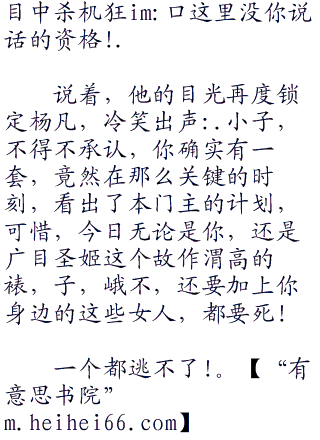 目中杀机狂im: 口这里没你说
话的资格!.
说着，他的目光再度锁
定杨凡，冷笑出声:.小子，
不得不承认，你确实有一
套，竟然在那么关键的时
刻，看出了本门主的计划，
可惜，今日无论是你，还是
广目圣姬这个故作渭高的
裱，子，峨不，还要加上你
身边的这些女人，都要死!
一个都逃不了!。【“有
意思书院”
m.heihei66.com】